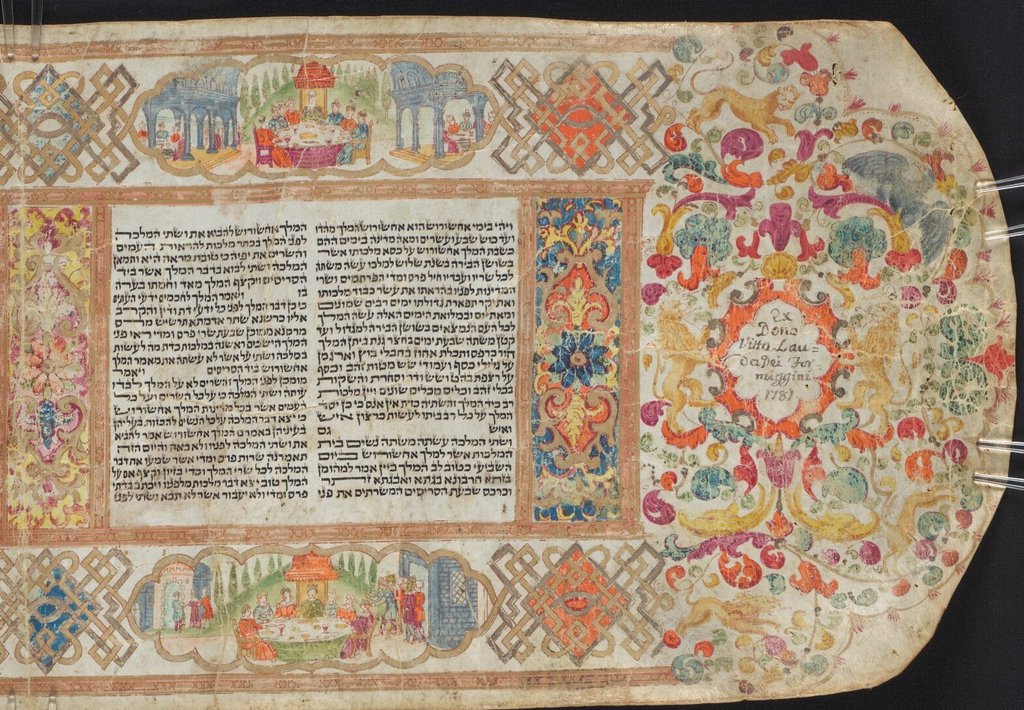 ויהי בימי אחשורוש הוא אחשורוש המלך מהדו
ועד כוש שבע ועשרים ומאה מדינה בימים ההם
כשבת המלך אחשורוש על כסא מלכותו אשר
בשושן הבירה בשנת שלוש למלכו עשה משתה
לכל שריו ועבדיו חיל פרס ומדי הפרתמים ושרי
המדינות לפניו בהראתו את עשר כבוד מלכותו
ואת יקר תפארת גדולתו ימים רבים שמונים
ומאת יום ובמלואת הימים האלה עשה המלך
לכל העם הנמצאים בשושן הבירה למגדול ועד
קטן משתה שבעת ימים בחצר גנת ביתן המלך
חור כרפס ותכלת אחוז בחבלי בוץ וארגמן
על גלילי כסף ועמודי שש מטות זהב וכסף
על רצפת בהט ושש ודר וסחרת והשקות
בכלי זהב וכלים מכלים שונים ויין מלכות
רב כיד המלך והשתיה כדת אין אנס כי כן יסד
המלך על כל רב ביתו לעשות כרצון איש
ואיש גם
ושתי המלכה עשתה משתה נשים בית
המלכות אשר למלך אחשורוש ביום
השביעי כטוב לב המלך ביין אמר למהומן
בזתא חרבונא בגתא ואבגתא זתר
וכרכס שבעת הסריסים המשרתים את פני
המלך אחשורוש להביא את ושתי המלכה
לפני המלך בכתר מלכות להראות העמים
והשרים את יפיה כי טובת מראה היא ותמאן
המלכה ושתי לבוא בדבר המלך אשר ביד
הסריסים ויקצף המלך מאד וחמתו בערה
בו ויאמר המלך לחכמים ידעי העתים
כי כן דבר המלך לפני כל ידעי דת ודין והקרב
אליו כרשנא שתר אדמתא תרשיש מרס
מרסנא ממוכן שבעת שרי פרס ומדי ראי פני
המלך הישבים ראשנה במלכות כדת מה לעשות
במלכה ושתי על אשר לא עשתה את מאמר המלך
אחשורוש ביד הסריסים ויאמר
מומכן לפני המלך והשרים לא על המלך לבדו
עותה ושתי המלכה כי על כל השרים ועל כל
העמים אשר בכל מדינות המלך אחשורוש
כי יצא דבר המלכה על כל הנשים להבזות בעליהן
בעיניהן באמרם המלך אחשורוש אמר להביא
את ושתי המלכה לפניו ולא באה והיום הזה
תאמרנה שרות פרס ומדי אשר שמעו את דבר
המלכה לכל שרי המלך וכדי בזיון וקצף אם על
המלך טוב יצא דבר מלכות מלפניו ויכתב בדתי
פרס ומדי ולא יעבור אשר לא תבוא ושתי לפני
Ex
Dono
Vitta Lau=
da Dei For
miggini
1781